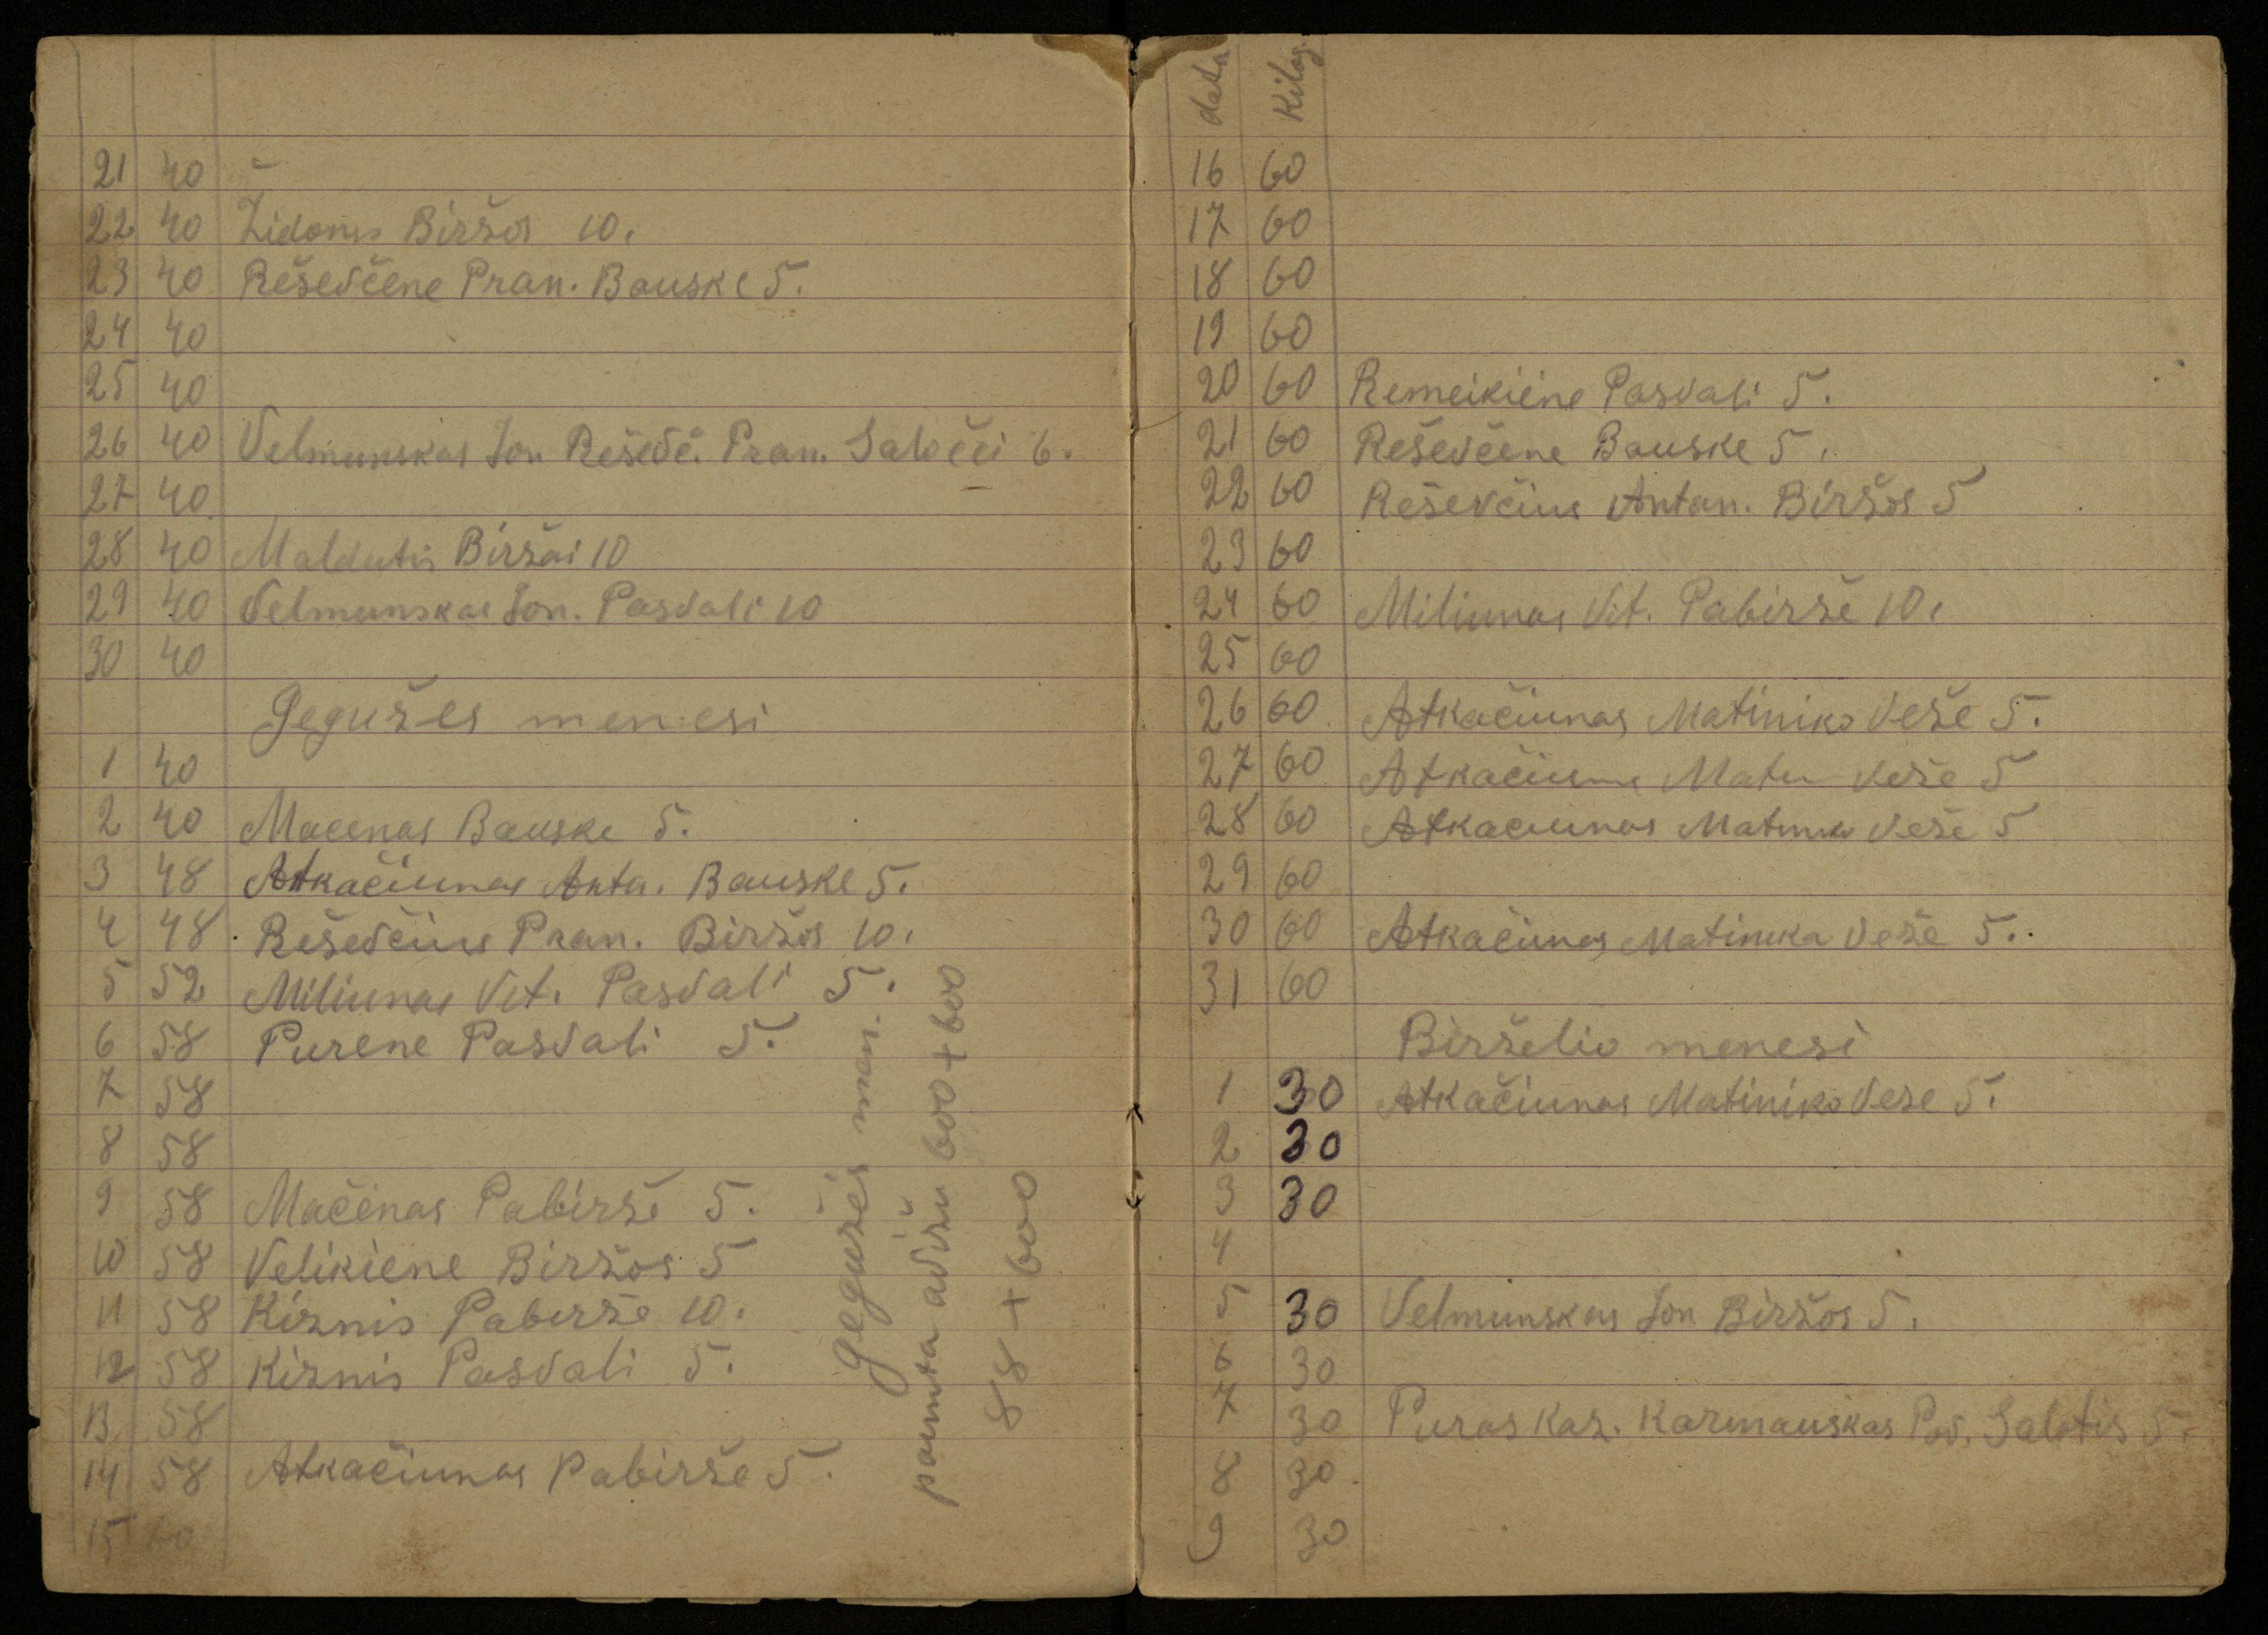 21 40
22 40 Židonis Biržos 10.
23 40 Reševčene Pran. Bauske 5.
24 40
25 40
26 40 Velmunskas Jon Reševč. Pran. Saločei 6.
27 40
28 40 Maldutis Biržai 10
29 40 Velmunskas Jon. Pasvali 10
30 40
Gegužes menesi
1 40
2 40 Macenas Bauske 5.
3 48 Atkačiunas Anta. Bauske 5.
4 48 Reševčius Pran. Biržos 10.
5 52 Miliunas Vit. Pasvali 5.
6 58 Purene Pasvali 5.
7 58
8 58
9 58 Mačenas Pabirže 5.
10 58 Velikiene Biržos 5
11 58 Kirnis Pabirže 10.
12 58 Kirnis Pasvali 5.
13 58
14 58 Atkačiunas Pabirže 5.
15 60
Gegužės men.
paimta avižu 600 + 600
88 + 600
data Kilog.
16 60
17 60
18 60
19 60
20 60 Remeikiene Pasvali 5.
21 60 Reševčene Bauske 5.
22 60 Reševčius Antan. Biržos 5
23 60
24 60 Miliunas Vit. Pabirže 10.
25 60
26 60 Atkačiunas Matiniko Veže 5.
27 60 Veže 5
28 60 Atkaciunas Veže 5
29 60
30 60 Atkačiunas Veže 5.
31 60
Birželio menesi
1 30 Atkačiunas Matiniko Veze 5.
2 30
3 30
4
5 30 Velmunskas Jon Biržos 5.
6 30
7 30 Puras Kaz. Karmauskas Pov. Salotis 5.
8 30
9 30